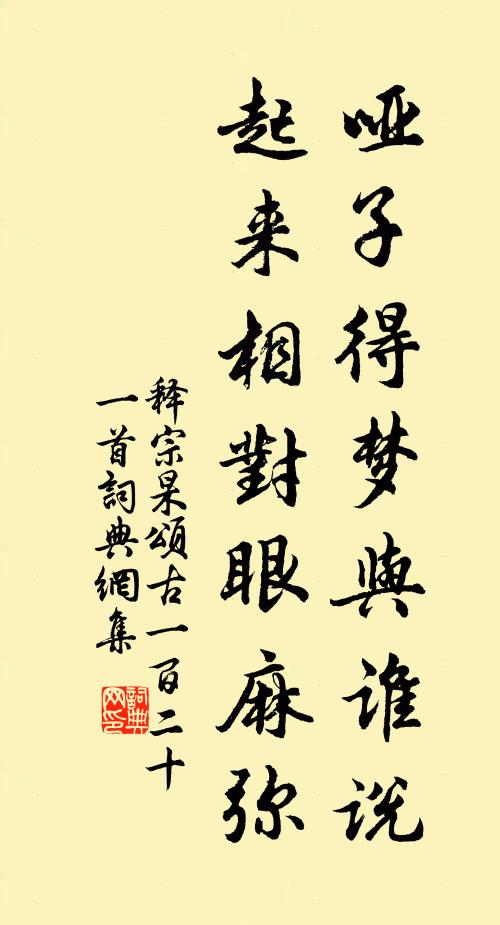 哑子得梦與谁说
起来相對眼麻弥
释宗杲頌古一百二十
一首詞典網集
詞典网印